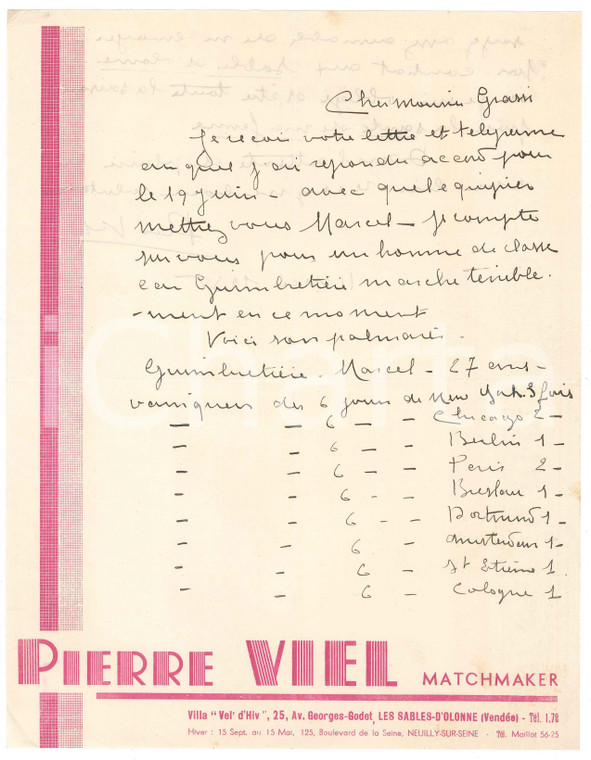 Cher Monsieur Grassi
Je recois votre lettre et telegramme
auquel j'ai repondu accord pour
le 19 juin - avec quel equipier
mettrez vous Marcel - je compte
sur vous pour un homme de classe
car Guimbretière marche terrible-
-ment en ce moment
Voici son palmarès -
Guimbretière - Marcel - 27 ans -
vainqueur des 6 jours de New York. 3 fois
— — 6 — - Chicago 2 -
— — 6 — - Berlin 1 -
— — 6 — - Paris 2 -
— — 6 - - Breslau 1 -
— — 6 - - Dortmund 1 -
— — 6 - Amsterdam 1 -
— — 6 - St Etienne 1
— — 6 - Cologne 1
PIERRE VIEL MATCHMAKER
Villa "Vel' d'Hiv", 25, Av. Georges-Godet, LES SABLES-D'OLONNE (Vendée) - Tél. 1.78
Hiver : 15 Sept. au 15 Mai, 125, Boulevard de la Seine, NEUILLY-SUR-SEINE - Tél. Maillot 56-25